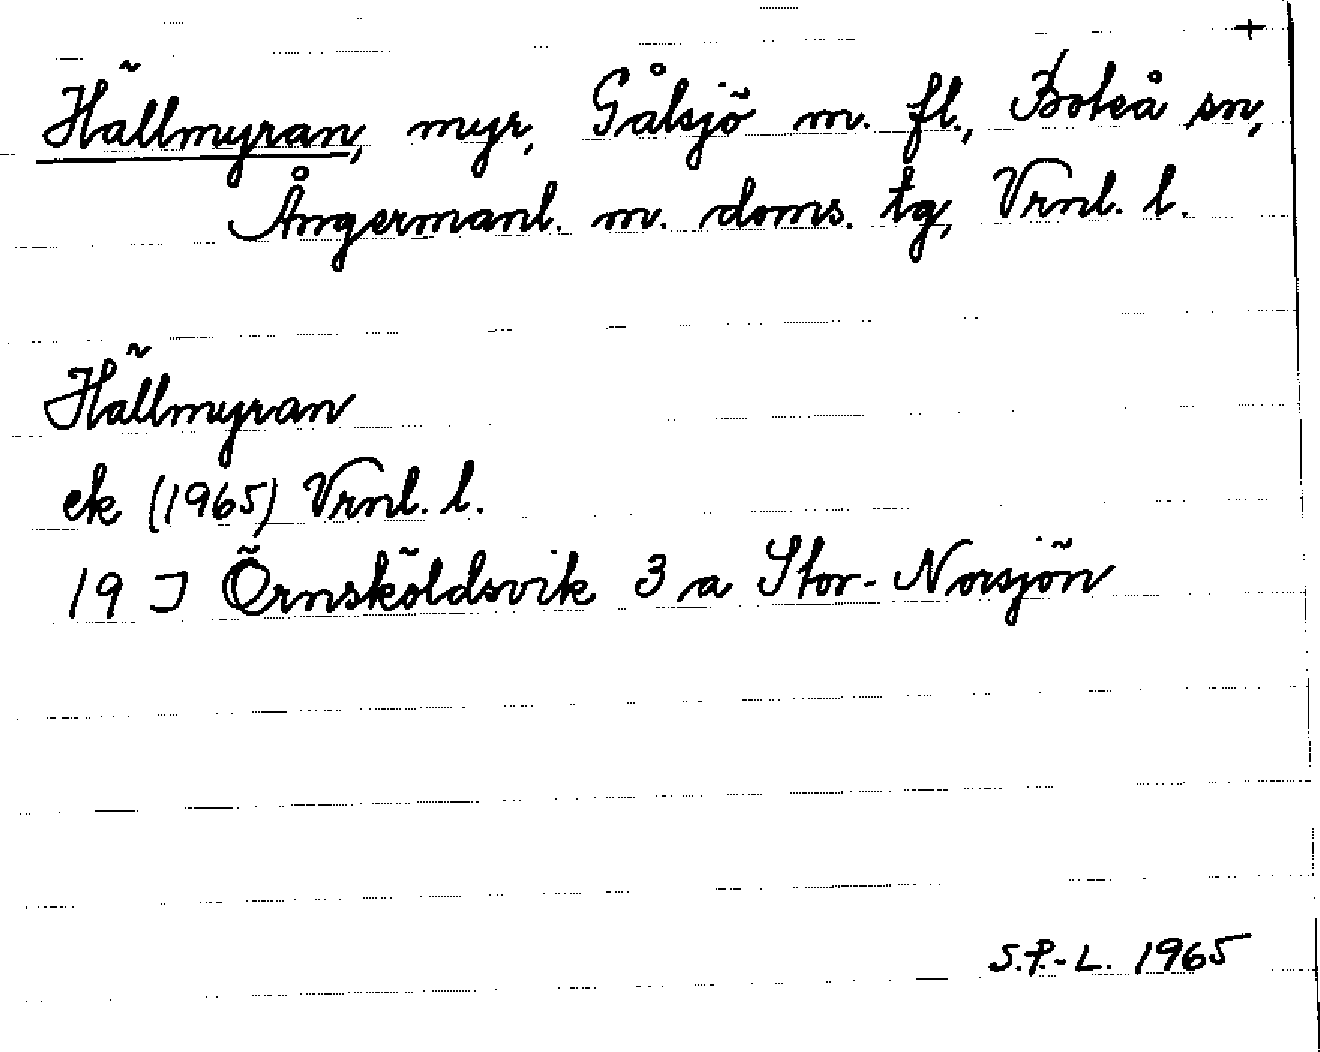 +
Hällmyran, myr, Gålsjö m. fl., Boteå sn,
Ångermanl. m. doms. tg, Vrnl. l.
Hällmyran
ek (1965) Vrnl. l.
19 J Örnsköldsvik 3 a Stor-Norsjön
S.P.-L. 1965